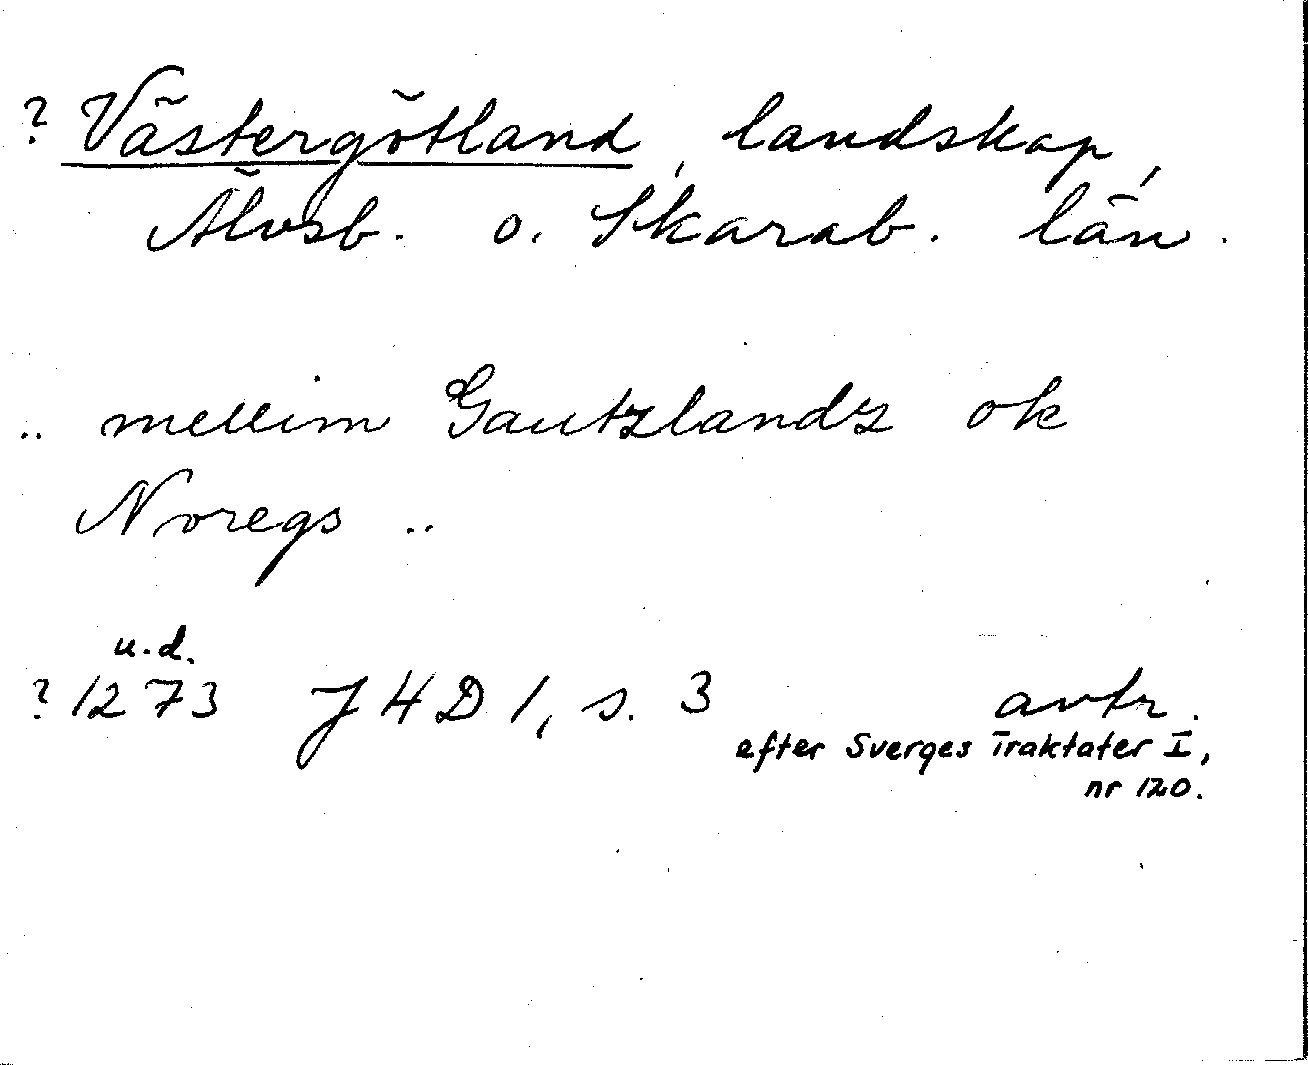 ? Västergötland, landskap,
Älvsb. o. Skarab. län.
.. mellim Gautzlandz ok
Noregs ..
u.d.
? 1273 JHD 1, s. 3 avtr.
efter Sverges Traktater I,
nr 120.